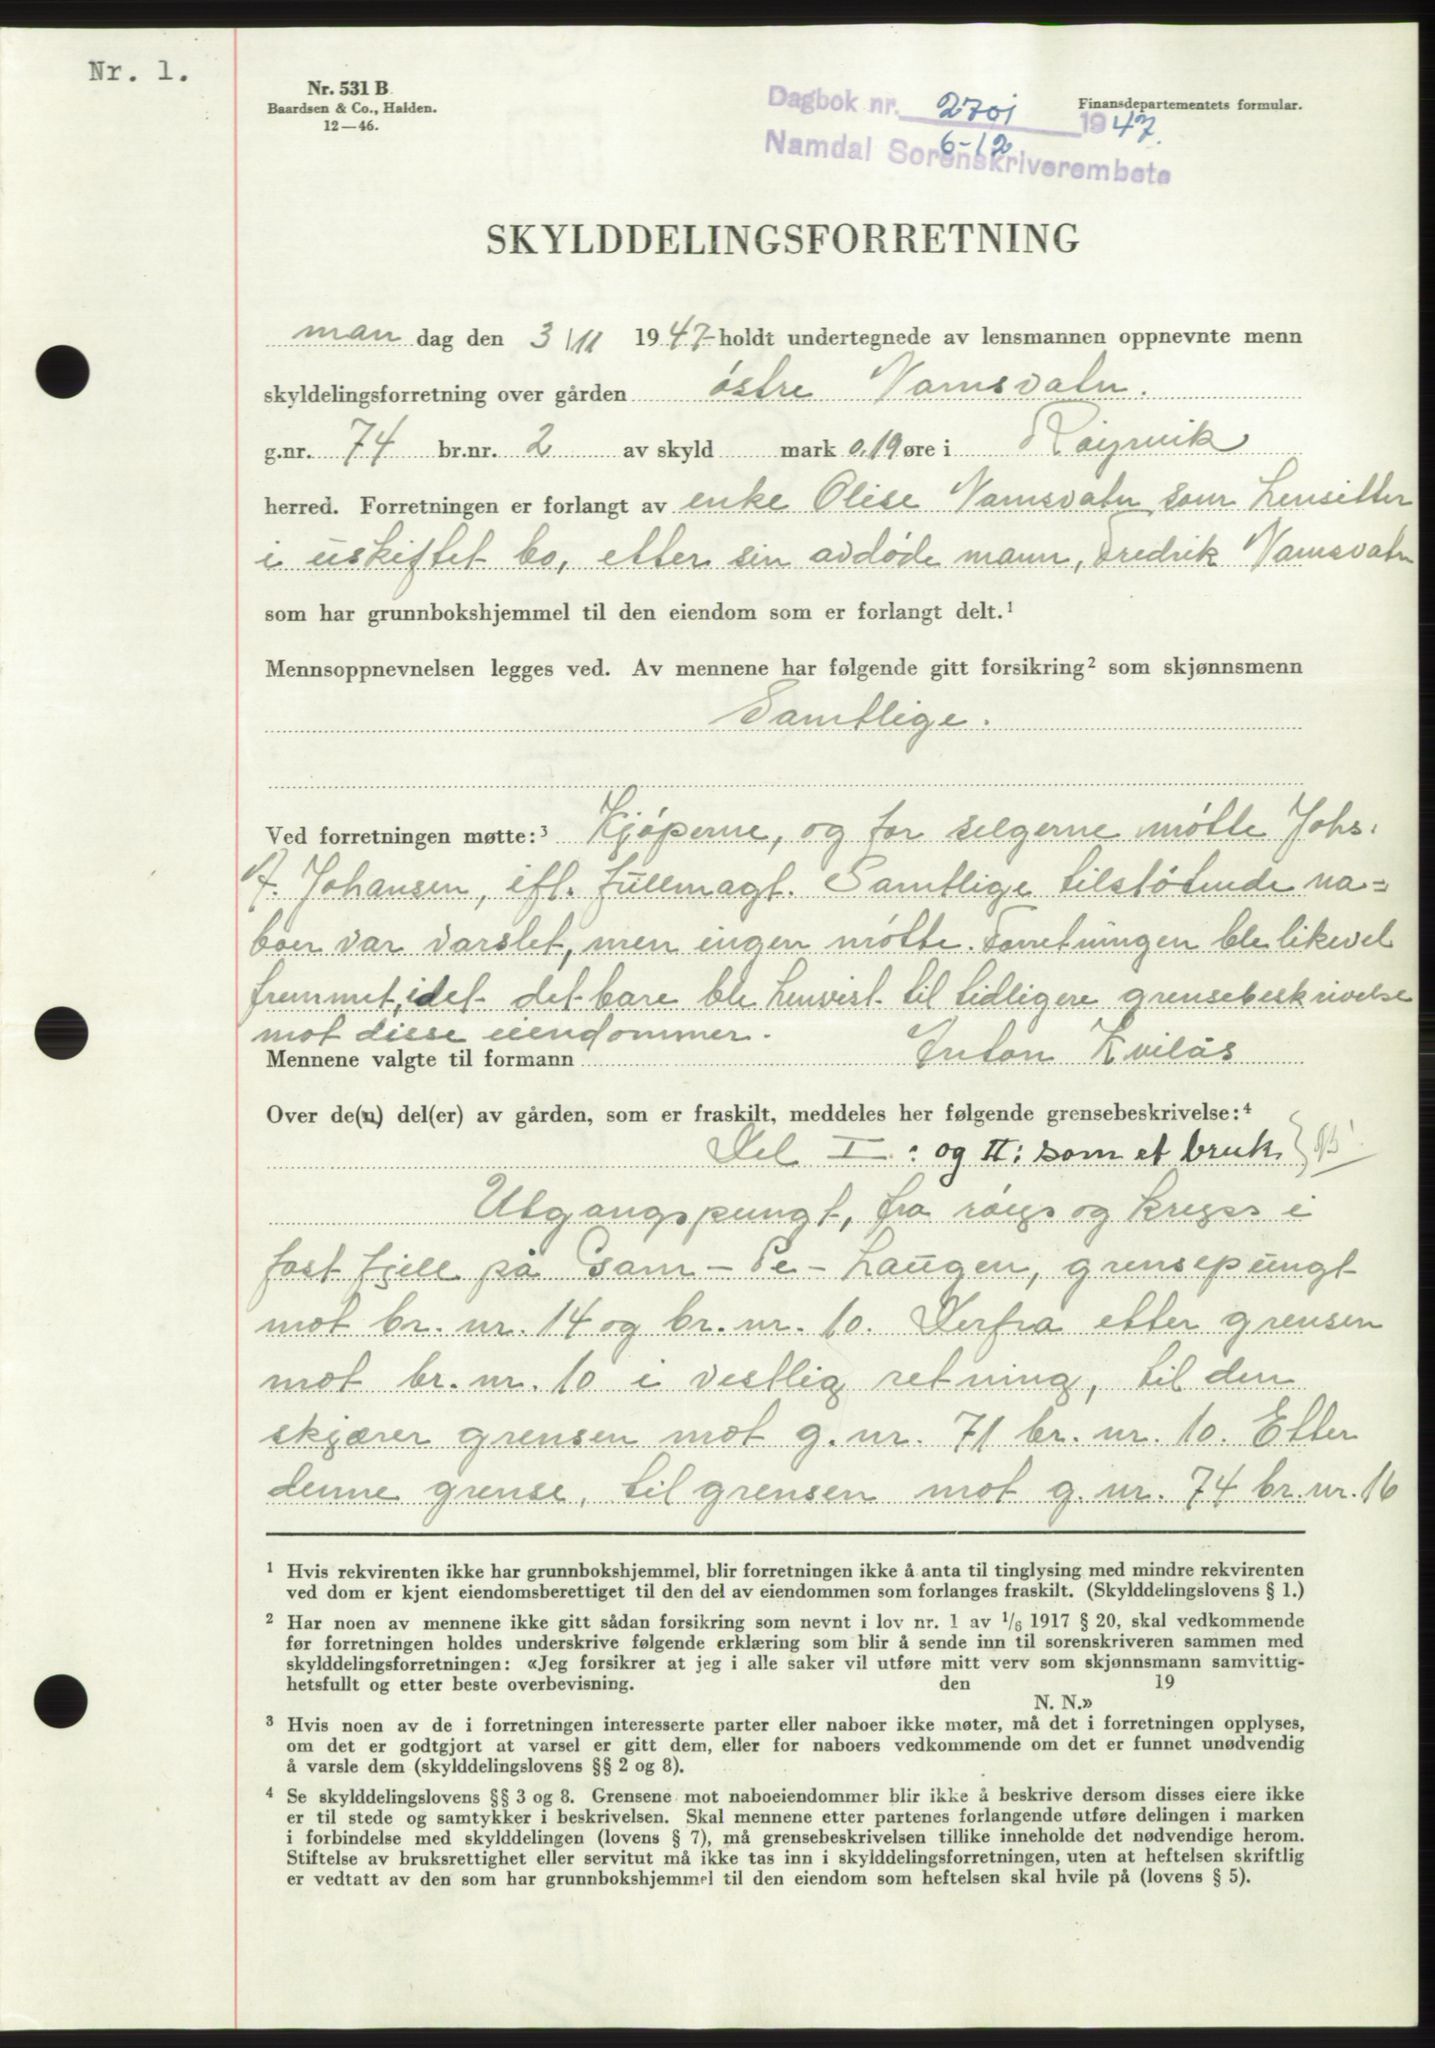 Nr. 1.
Nr. 531 B
Baardsen & Co., Halden.
12—46.
Dagbok nr. 2701 1947.
6-12
Namdal Sorenskriverembete
Finansdepartementets formular.
SKYLDDELINGSFORRETNING
man dag den 3/11 1947 holdt undertegnede av lensmannen oppnevnte menn
skyldelingsforretning over gården østre Namsvatn.
g.nr. 74 br.nr. 2 av skyld mark 0,19 øre i Røyrvik
herred. Forretningen er forlangt av enke Olise Namsvatn som hensitter
i uskiftet bo, etter sin avdøde mann, Fredrik Namsvatn
som har grunnbokshjemmel til den eiendom som er forlangt delt.¹
Mennsoppnevnelsen legges ved. Av mennene har følgende gitt forsikring² som skjønnsmenn
Samtlige.
Ved forretningen møtte:³ Kjøperne, og for selgerne møtte Johs.
A. Johansen, ifl. fullmagt. Samtlige tilstøtende na=
boer var varslet, men ingen møtte. Forretningen ble likevel
fremmet, idet det bare ble henvist til tidligere grensebeskrivelse
mot disse eiendommer.
Mennene valgte til formann Anton Kvilås
Over de(n) del(er) av gården, som er fraskilt, meddeles her følgende grensebeskrivelse:⁴
Del I : og II: som et bruk
Utgangspungt, fra røys og kryss i
fast fjell på Gam-Pe-haugen, grensepungt
mot br. nr. 14 og br. nr. 10. Derfra etter grensen
mot br. nr. 10 i vestlig retning, til den
skjærer grensen mot g. nr. 71 br. nr. 10. Etter
denne grense, til grensen mot g. nr. 74 br. nr. 16
¹ Hvis rekvirenten ikke har grunnbokshjemmel, blir forretningen ikke å anta til tinglysing med mindre rekvirenten
ved dom er kjent eiendomsberettiget til den del av eiendommen som forlanges fraskilt. (Skylddelingslovens § 1.)
² Har noen av mennene ikke gitt sådan forsikring som nevnt i lov nr. 1 av 1/6 1917 § 20, skal vedkommende
før forretningen holdes underskrive følgende erklæring som blir å sende inn til sorenskriveren sammen med
skylddelingsforretningen: «Jeg forsikrer at jeg i alle saker vil utføre mitt verv som skjønnsmann samvittig-
hetsfullt og etter beste overbevisning. den 19
N. N.»
³ Hvis noen av de i forretningen interesserte parter eller naboer ikke møter, må det i forretningen opplyses,
om det er godtgjort at varsel er gitt dem, eller for naboers vedkommende om det er funnet unødvendig
å varsle dem (skylddelingslovens §§ 2 og 8).
⁴ Se skylddelingslovens §§ 3 og 8. Grensene mot naboeiendommer blir ikke å beskrive dersom disses eiere ikke
er til stede og samtykker i beskrivelsen. Skal mennene etter partenes forlangende utføre delingen i marken
i forbindelse med skylddelingen (lovens § 7), må grensebeskrivelsen tillike inneholde det nødvendige herom.
Stiftelse av bruksrettighet eller servitut må ikke tas inn i skylddelingsforretningen, uten at heftelsen skriftlig
er vedtatt av den som har grunnbokshjemmel til den eiendom som heftelsen skal hvile på (lovens § 5).